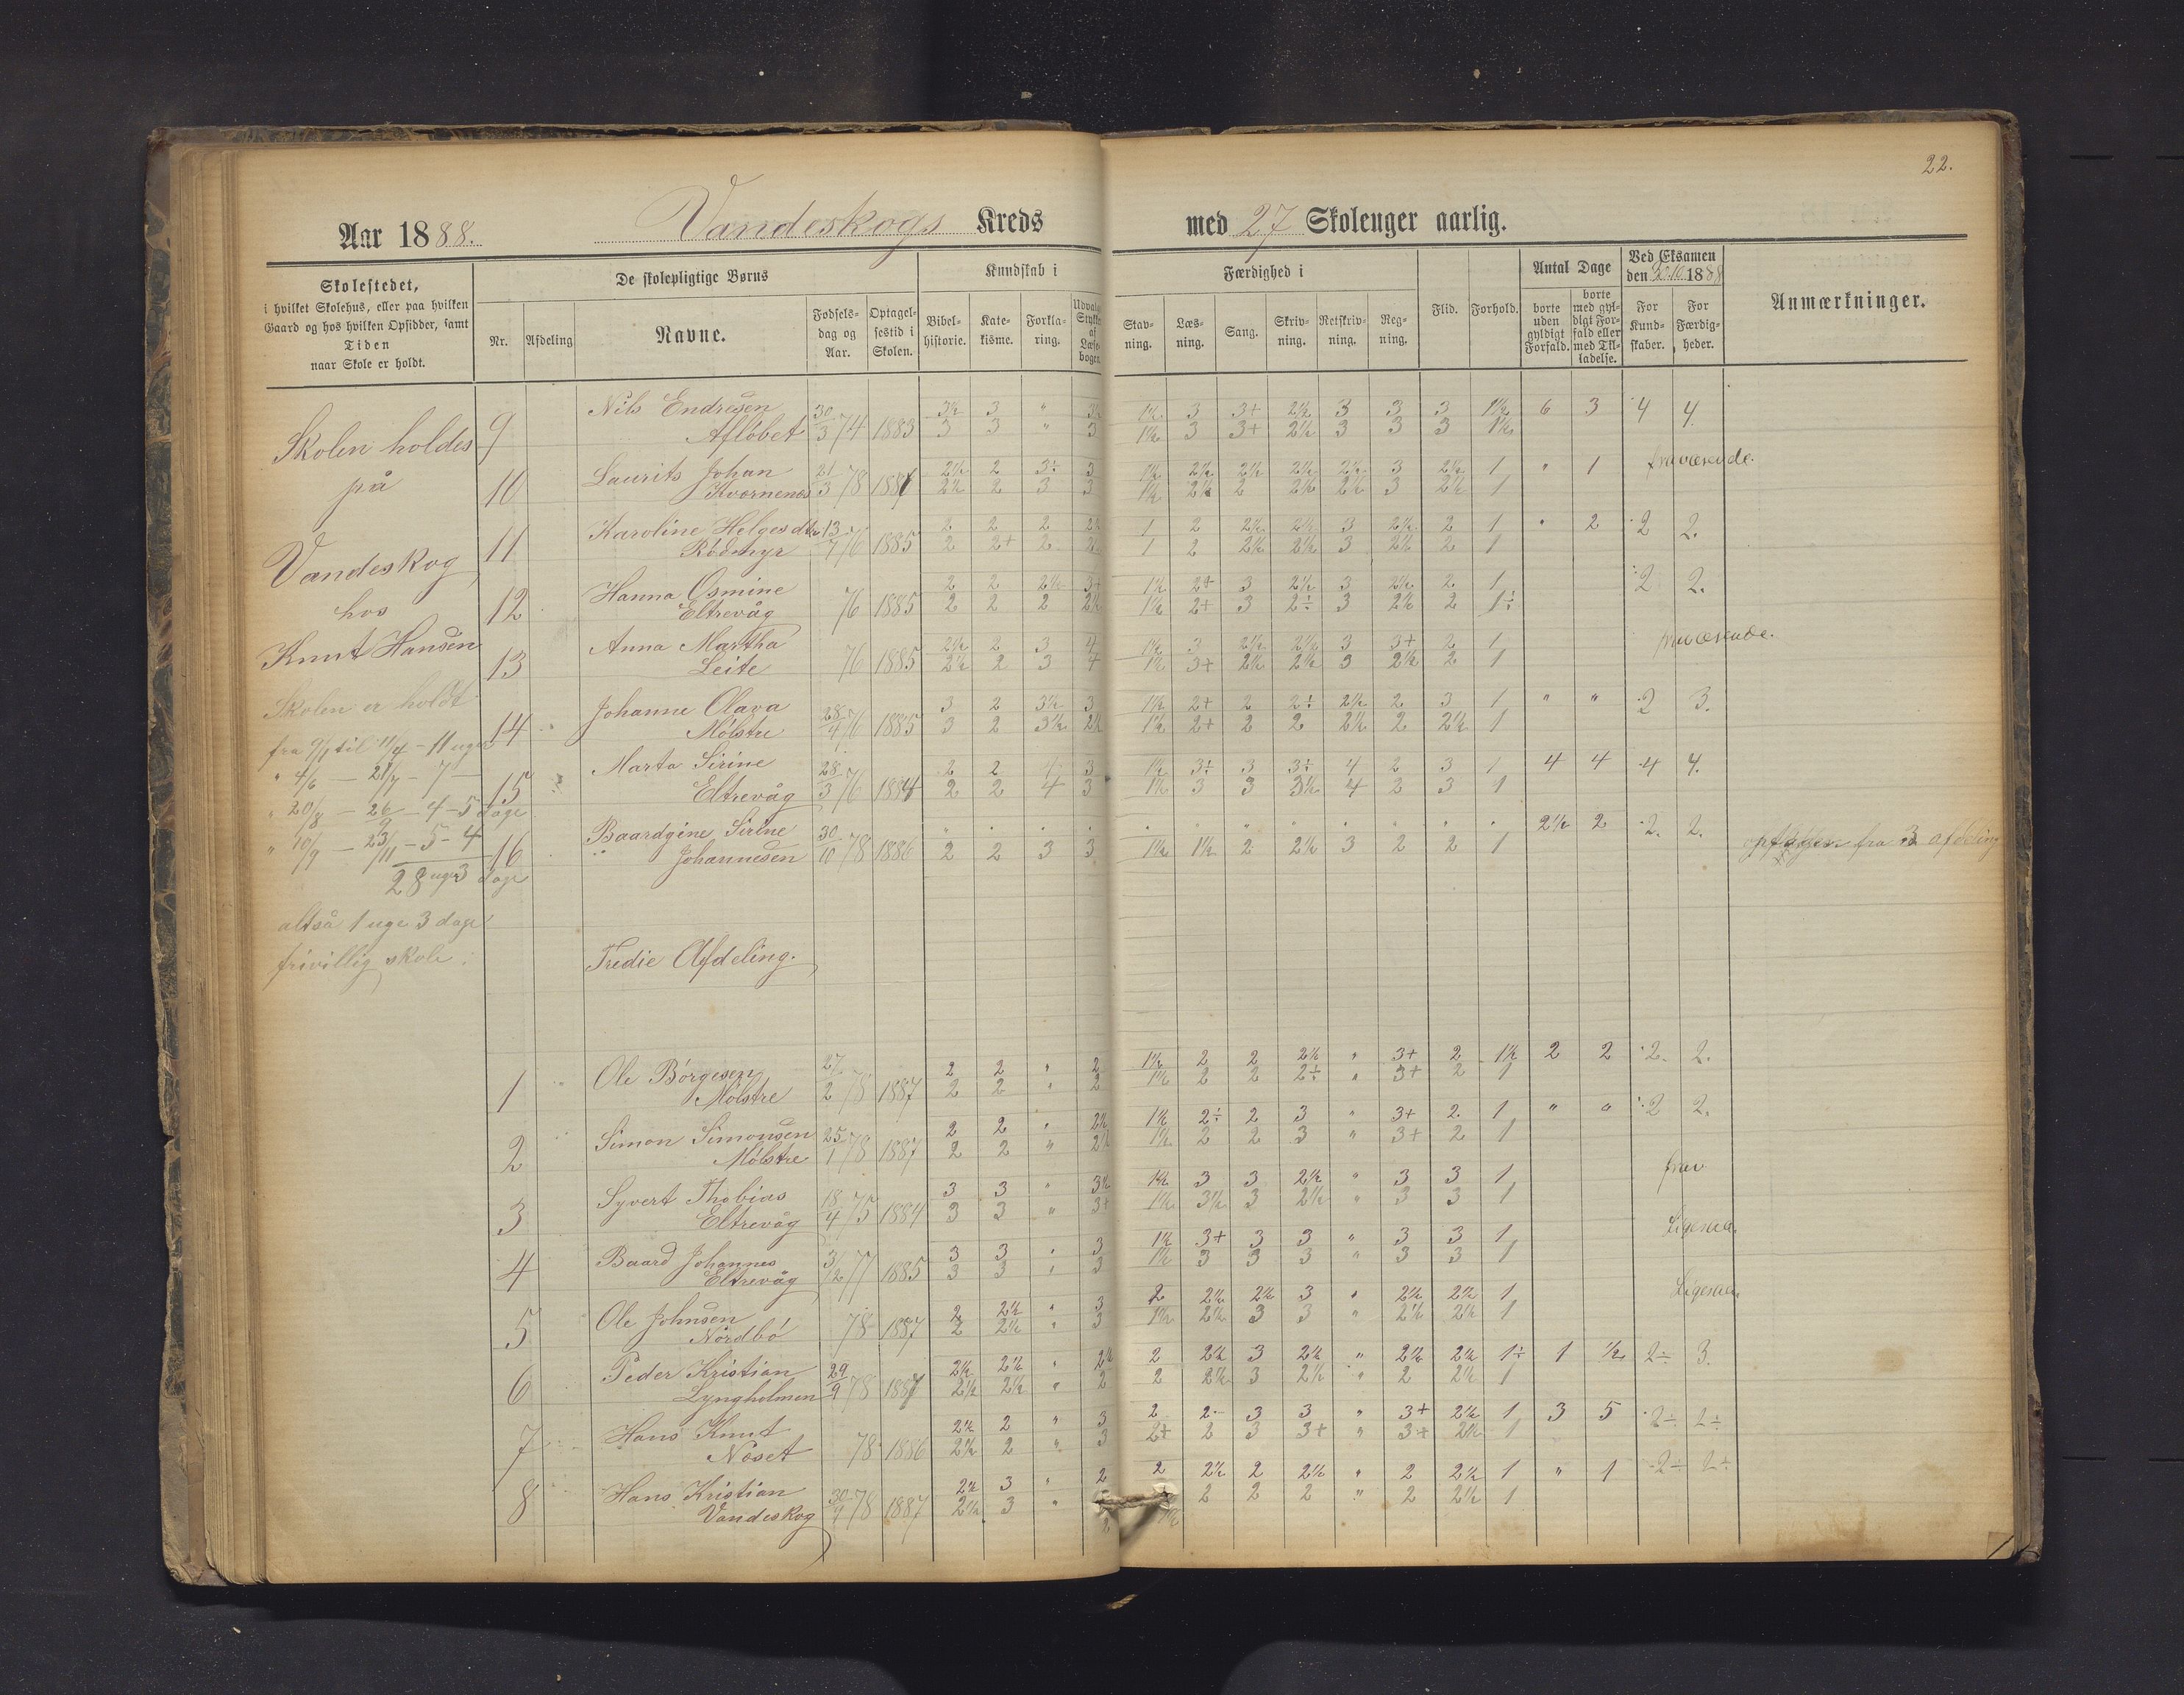 22.
Aar 1888. Vandeskogs Kreds med 27 Skoleuger aarlig.
Skolestedet,
i hvilket Skolehus, eller paa hvilken
Gaard og hos hvilken Opsidder, samt
Tiden
naar Skole er holdt.
De skolepligtige Børns
Nr.
Afdeling
Navne.
Fødsels-
dag og
Aar.
Optagel-
sestid i
Skolen.
Kundskab i
Bibel-
historie.
Kate-
kisme.
Forkla-
ring.
Udvalgte
Stykker
af
Læse-
bogen.
Færdighed i
Stav-
ning.
Læs-
ning.
Sang.
Skriv-
ning.
Retskriv-
ning.
Reg-
ning.
Flid.
Forhold.
Antal Dage
borte
uden
gyldigt
Forfald.
borte
med gyl-
digt For-
fald eller
med Til-
ladelse.
Ved Eksamen
den 1888
For
Kund-
skaber.
For
Færdig-
heder.
Anmærkninger.
Skolen holdes
på
Vandeskog
hos
Knut Hansen
Skolen er holdt
fra 9/1 til 11/4 - 11 uger
" 4/6 — 21/7 - 7 —
" 20/8 — 26/9 - 4 - 5 dage
" 10/9 — 23/11 - 5 - 4
28 uger 3 dage
altså 1 uge 3 dage
frivillig skole.
9 Nils Endresen 30 3½ 3 " 3½ 1½ 3 3+ 2½ 3 3 3 1½ 6 3 4 4.
Afløbet 3 74 1883 3 3 " 3 1½ 3 3+ 2½ 3 3 3 1½
10 Laurits Johan 21 2½ 2 3÷ 3 1½ 2½ 2½ 2½ 2½ 3 2½ 1 " 1 fraværende.
Kvernenes 3 78 1887 2½ 2 3 3 1½ 2½ 2 2½ 2½ 3 2½ 1
11 Karoline Helgesdtr 13 2 2 2 2½ 1 2 2½ 2½ 3 2½ 2 1 " 2 2 2.
Rødmyr 7 76 1885 2 2+ 2 2 1 2 2½ 2½ 3 2½ 2 1
12 Hanna Osmine 2 2 2½ 3+ 1½ 2+ 3 2½ 3 2½ 2 1 2 2.
Eltrevåg 76 1885 2 2 2 2½ 1½ 2+ 3 2÷ 3 2½ 2 1÷
13 Anna Martha 2½ 2 3 4 1½ 3 2½ 2½ 3 3+ 2 1 fraværende.
Leite 76 1885 2½ 2 3 4 1½ 3+ 2½ 2½ 3 2½ 2 1
14 Johanne Olava 28 3 2 3½ 3 1½ 2+ 2 2÷ 2½ 2 3 1 " " 2 3.
Mølstre 4 76 1885 3 2 3½ 2½ 1½ 2+ 2 2 2½ 2 2½ 1
15 Marta Sirine 28 2 2 4 3 1½ 3÷ 3 3÷ 4 2 3 1 4 4 4 4.
Eltrevåg 3 76 1884 2 2 4 3 1½ 3 3 3½ 4 2 3 1
16 Baardgine Sirine 30 " " " " " " " " " " " " 2½ 2 2. 2.
Johannesen 10 78 1886 2 2 3 3 1½ 1½ 2 2½ 3 2 2 1 fra 3 afdeling
Tredie Afdeling.
1 Ole Børgesen 27 2 2 " 2 1½ 2 2 2½ " 3+ 2 1½ 2 2 2. 2.
Mølstre 2 78 1887 2 2 " 2 1½ 2 2 2÷ " 3+ 2 1
2 Simon Simonsen 25 2 2 " 2½ 1½ 2÷ 2 3 " 3+ 2 1 " " 2 2.
Mølstre 1 78 1887 2 2 " 2½ 1½ 2 2 3 " 3+ 2 1
3 Syvert Thobias 18 3 3 " 3½ 1½ 3 3 2½ " 3 3 1 frav
Eltrevåg 4 75 1884 3 3 " 3+ 1½ 3½ 3 2½ " 3 3 1
4 Baard Johannes 3 3 3 " 3 1½ 3+ 3 3 " 3 3 1 Ligesaa.
Eltrevåg 12 77 1885 3 3 " 3 1½ 3 3 3 " 3 3 1
5 Ole Johnsen 2 2½ " 3 2 2½ 2½ 3 " 2½ 2½ 1 Ligesaa.
Nordbø 78 1887 2 2½ " 3 1½ 2½ 3 3 " 2½ 2½ 1
6 Peder Kristian 29 2½ 2½ " 2½ 2 2½ 3 2½ " 2½ 2½ 1÷ 1 ½ 2÷ 3.
Lyngholmen 9 78 1887 2½ 2½ " 2 2 2½ 3 2½ " 2 2½ 1
7 Hans Knut 2½ 2 " 3 2 2 3 3 " 3+ 2½ 1 3 5 2÷ 2÷
Noset 78 1886 2½ 2 " 3 2+ 2 3 3+ " 3+ 2½ 1
8 Hans Kristian 30 2½ 3 " 2 2 2½ 2 2½ " 2 2½ 1 " 1 2÷ 2÷
Vandeskog 9 78 1887 2½ 3 " 2 1½ 2 2 2 " 2 2½ 1